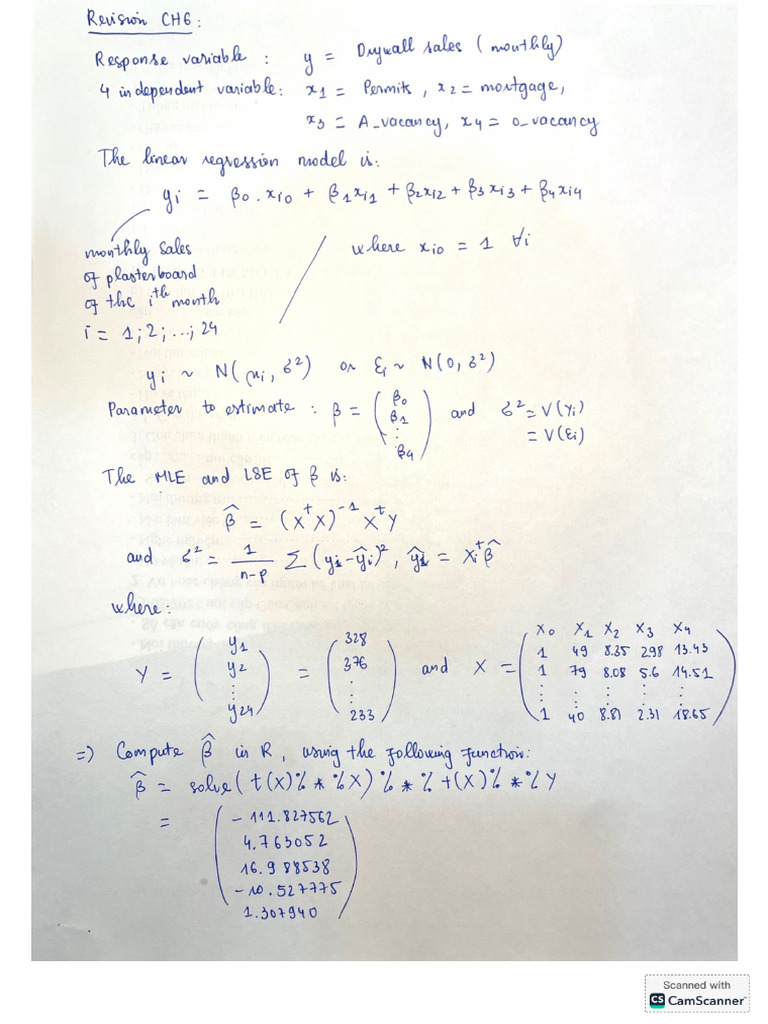 Revision CH6:
Response variable : y = Drywall sales (monthly)
4 independent variable: x1 = Permits, x2 = mortgage,
x3 = A_vacancy, x4 = o_vacancy
The linear regression model is:
yi = β0.xi0 + β1xi1 + β2xi2 + β3xi3 + β4xi4
monthly sales
of plasterboard
of the ith month
i = 1;2;...;24
where xi0 = 1 ∀i
yi ~ N(μi, σ²) or Ɛi ~ N(0, σ²)
Parameter to estimate : β = (β0 β1 ⋮ β4) and σ² = V(Yi)
= V(Ɛi)
The MLE and LSE of β is:
β̂ = (X^t X)^-1 X^t Y
and σ² = 1/(n-p) Σ (yi - ŷi)², ŷi = Xi^t β̂
where:
X0 X1 X2 X3 X4
Y = (y1 y2 ⋮ y24) = (328 376 ⋮ 233) and X = (
1 49 8.35 2.98 13.43
1 79 8.08 5.6 14.51
⋮ ⋮ ⋮ ⋮ ⋮
1 40 8.81 2.31 18.65
)
=) Compute β̂ in R, using the following function:
β̂ = solve(t(X)%*%X)%*%t(X)%*%Y
= (
-111.827562
4.763052
16.988538
-10.527775
1.307940
)
Scanned with
CS CamScanner